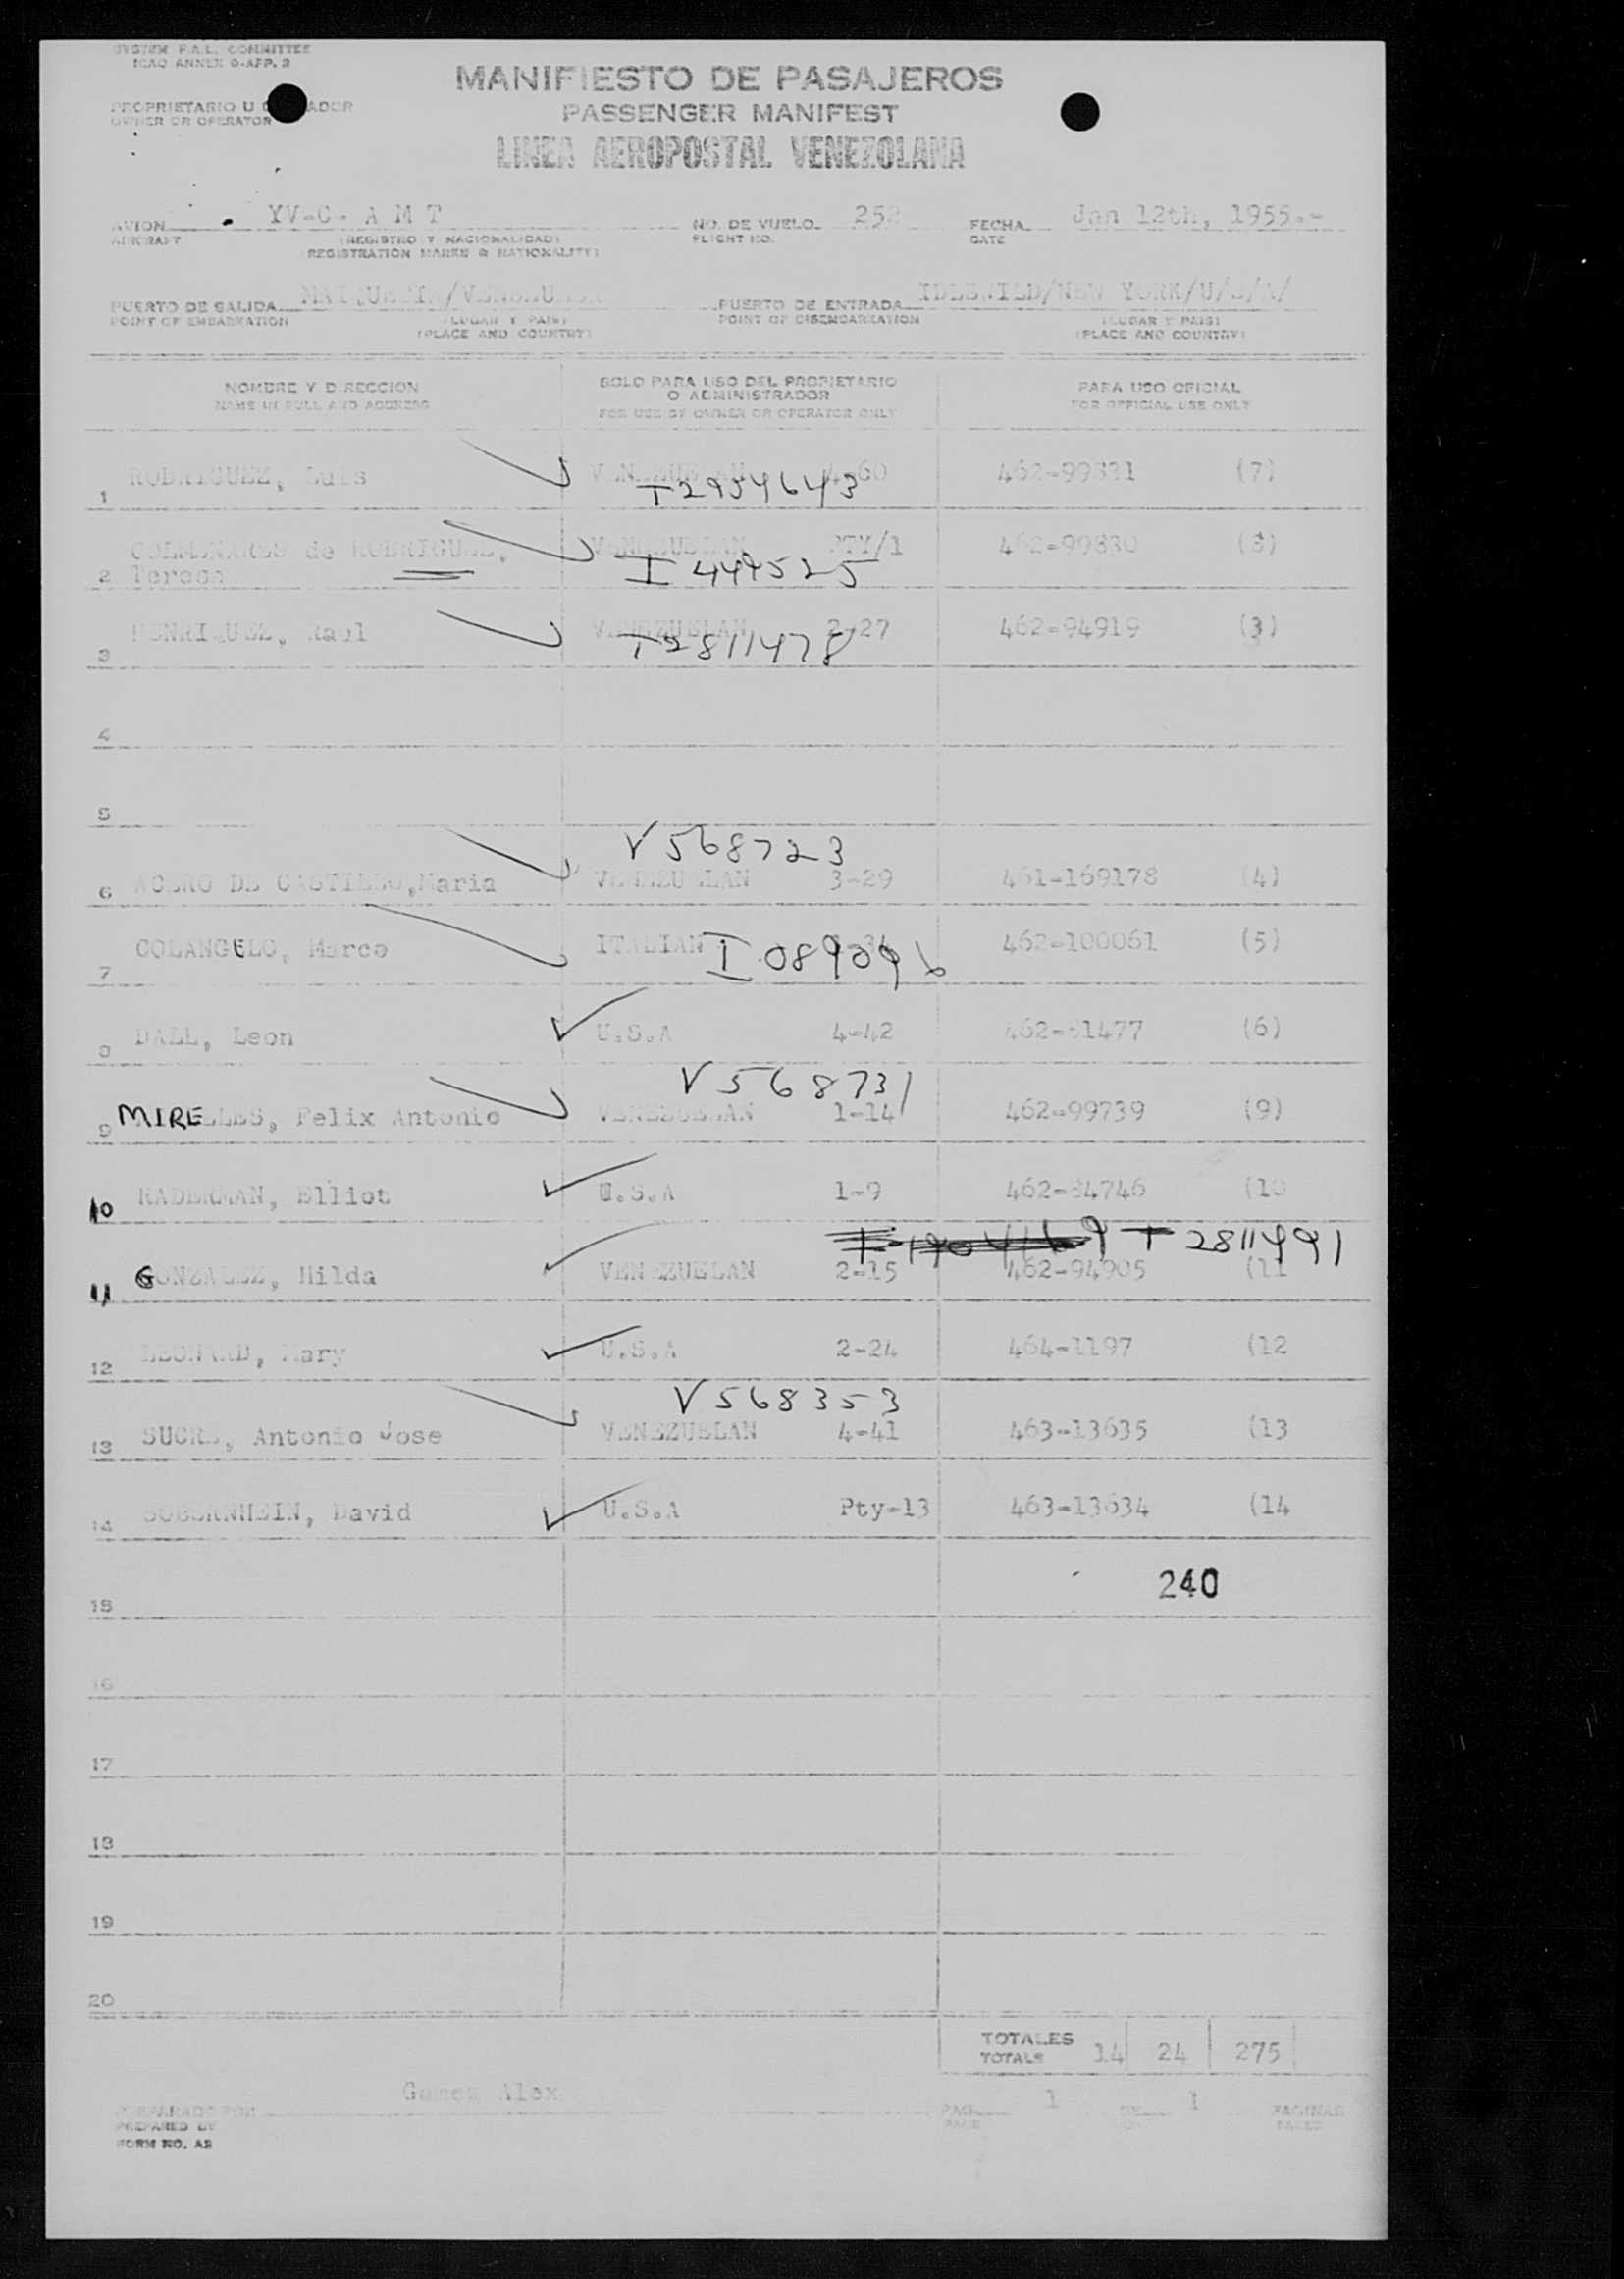 SYSTEM F.A.L. COMMITTEE
ICAO ANNEX 9-APP. 2
MANIFIESTO DE PASAJEROS
PASSENGER MANIFEST
LINEA AEROPOSTAL VENEZOLANA
PROPRIETARIO U ADOR
OWNER OR OPERATOR
AVION YV-C- A M T NO. DE VUELO 252 FECHA Jan 12th, 1955.-
AIRCRAFT (REGISTRO Y NACIONALIDAD) FLIGHT NO. DATE
REGISTRATION MARKS & NATIONALITY)
PUERTO DE SALIDA MAIQUETIA/VENEZUELA PUERTO DE ENTRADA IDLEWILD/NEW YORK/U/S/A/
POINT OF EMBARKATION (LUGAR Y PAIS) POINT OF DISEMBARKATION (LUGAR Y PAIS)
(PLACE AND COUNTRY) (PLACE AND COUNTRY)
NOMBRE Y DIRECCION SOLO PARA USO DEL PROPIETARIO PARA USO OFICIAL
O ADMINISTRADOR
NAME IN FULL AND ADDRESS FOR USE BY OWNER OR OPERATOR ONLY FOR OFFICIAL USE ONLY
1 RODRIGUEZ, Luis VENEZUELAN 60 462-99831 (7)
T2954643
2 COLMENARES de RODRIGUEZ, VENEZUELAN PTY/1 462-99830 (8)
Teresa I 449525
3 HENRIQUEZ, Raul VENEZUELAN 2-27 462-94919 (3)
T2811478
4
5
V568723
6 ACERO DE CASTILLO,Maria VENEZUELAN 3-29 461-169178 (4)
7 COLANGELO, Marco ITALIAN I 089096 462-100061 (5)
8 DALL, Leon U.S.A 4-42 462-81477 (6)
V568731
9 MIRELLES, Felix Antonio VENEZUELAN 1-14 462-99739 (9)
10 RADERMAN, Elliot U.S.A 1-9 462-84746 (10
T 2811491
11 GONZALEZ, Hilda VENEZUELAN 2-15 462-94905 (11
12 LEONARD, Mary U.S.A 2-24 464-1197 (12
V568353
13 SUCRE, Antonio Jose VENEZUELAN 4-41 463-13635 (13
14 SOBERNHEIN, David U.S.A Pty-13 463-13634 (14
240
15
16
17
18
19
20
TOTALES
TOTALS 14 24 275
Gomez Alex
PREPARADO POR PAG. 1 DE 1 PAGINAS
PREPARED BY PAGE OF PAGES
FORM NO. A2